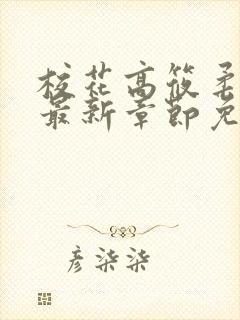 校花高筱柔
最新章節免
彦柒柒